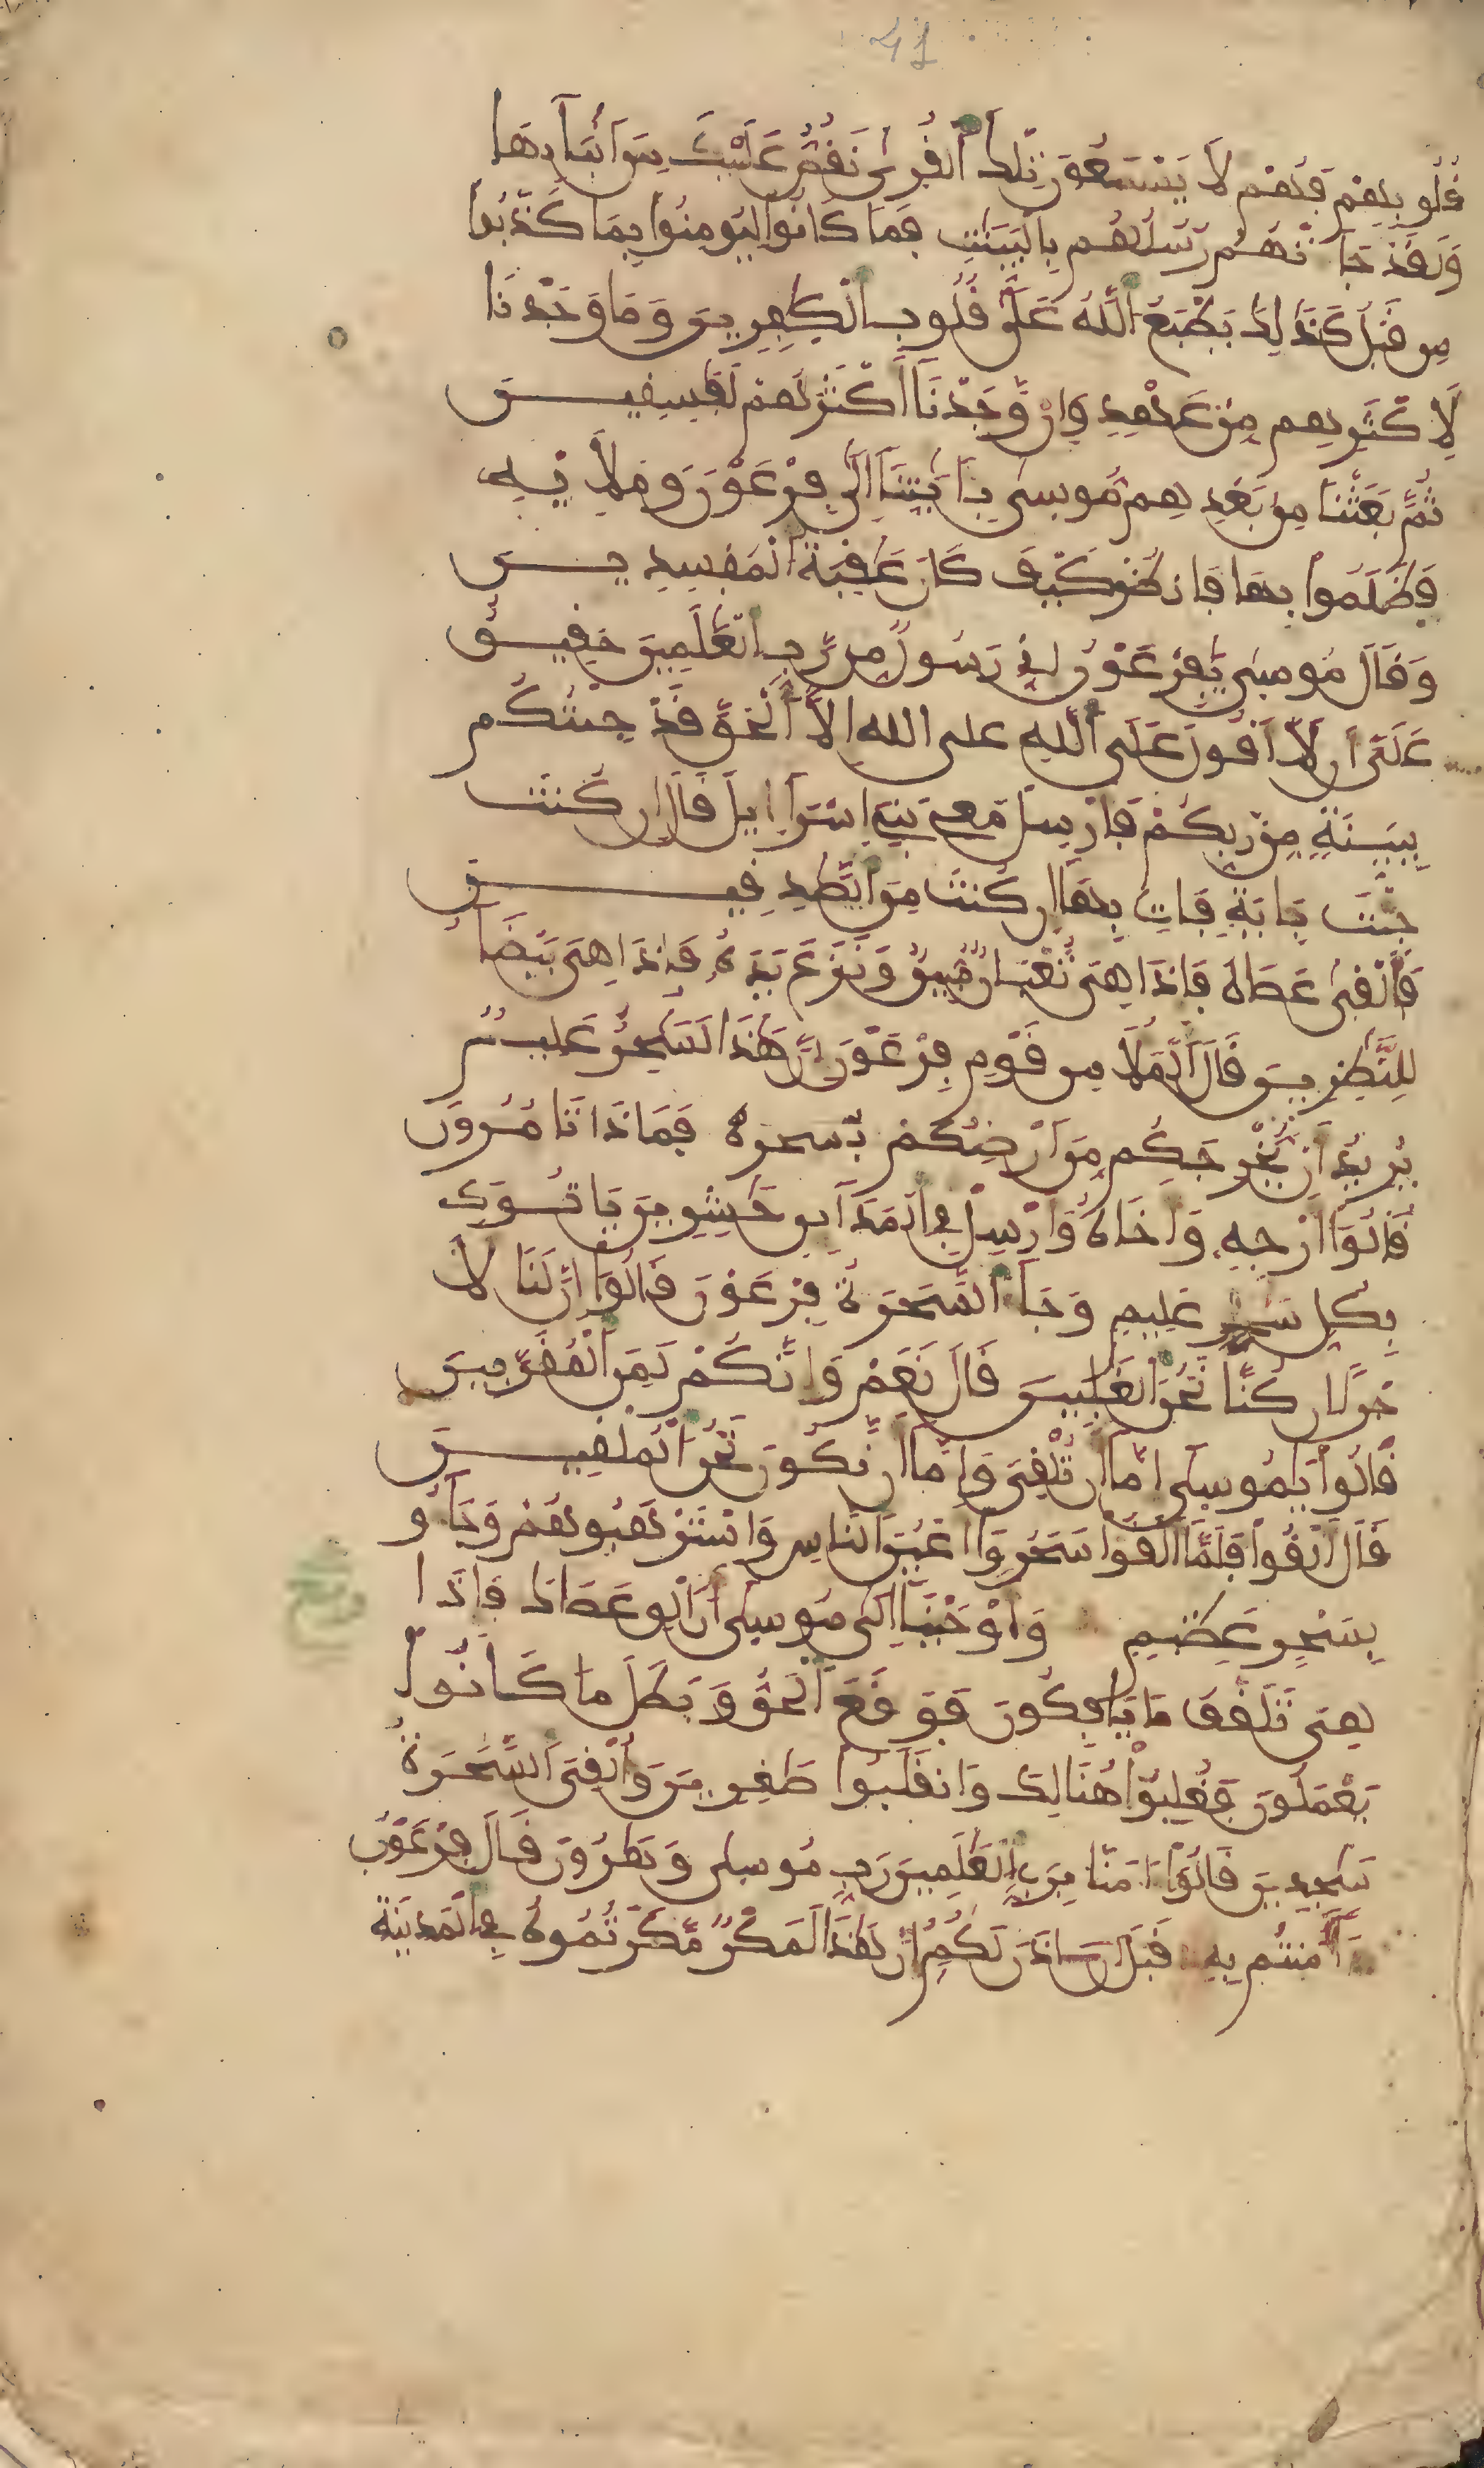 41
قُلُوبِهِمْ فَهُمْ لَا يَسْمَعُونَ تِلْكَ ٱلْقُرَىٰ نَقُصُّ عَلَيْكَ مِنَ ٱنۢبَآئِهَا
وَلَقَدْ جَآءَتْهُمْ رُسُلُهُم بِالْبَيِّنَٰتِ فَمَا كَانُوا لِيُومِنُوا بِمَا كَذَّبُوا
مِن قَبْلُ كَذَٰلِكَ يَطْبَعُ ٱللَّهُ عَلَىٰ قُلُوبِ ٱلْكَٰفِرِينَ وَمَا وَجَدْنَا
لِأَكْثَرِهِم مِّنْ عَهْدٍ وَإِن وَّجَدْنَآ أَكْثَرَهُمْ لَفَٰسِقِينَ
ثُمَّ بَعَثْنَا مِنۢ بَعْدِهِم مُّوسَىٰ بِـَٔايَٰتِنَآ إِلَىٰ فِرْعَوْنَ وَمَلَإِيْهِ
فَظَلَمُوا بِهَا فَانظُرْ كَيْفَ كَانَ عَٰقِبَةُ ٱلْمُفْسِدِينَ
وَقَالَ مُوسَىٰ يَٰفِرْعَوْنُ إِنِّي رَسُولٌ مِّن رَّبِّ ٱلْعَٰلَمِينَ حَقِيقٌ
عَلَيَّ أَن لَّا أَقُولَ عَلَى ٱللَّهِ على الله إِلَّا ٱلْحَقَّ قَدْ جِئْتُكُم
بِبَيِّنَةٍ مِّن رَّبِّكُمْ فَأَرْسِلْ مَعِي بَنِي إِسْرَآءِيلَ قَالَ إِن كُنتَ
جِئْتَ بِـَٔايَةٍ فَاتِ بِهَآ إِن كُنتَ مِنَ ٱلصَّٰدِقِينَ
فَأَلْقَىٰ عَصَاهُ فَإِذَا هِيَ ثُعْبَانٌ مُّبِينٌ وَنَزَعَ يَدَهُ فَإِذَا هِيَ بَيْضَآءُ
لِلنَّٰظِرِينَ قَالَ ٱلْمَلَأُ مِن قَوْمِ فِرْعَوْنَ إِنَّ هَٰذَا لَسَٰحِرٌ عَلِيمٌ
يُرِيدُ أَن يُّخْرِجَكُم مِّنَ ٱرْضِكُمْ بسحره فَمَاذَا تَامُرُونَ
قَالُوٓا أَرْجِهِ وَأَخَاهُ وَأَرْسِلْ فِي ٱلْمَدَآئِنِ حَٰشِرِينَ يَاتُوكَ
بِكُلِّ سَٰحِرٍ عَلِيمٍ وَجَآءَ ٱلسَّحَرَةُ فِرْعَوْنَ قَالُوٓا إِنَّ لَنَا لَأَ
جْرًا إِن كُنَّا نَحْنُ ٱلْغَٰلِبِينَ قَالَ نَعَمْ وَإِنَّكُمْ لَمِنَ ٱلْمُقَرَّبِينَ
قَالُوا يَٰمُوسَىٰ إِمَّآ أَن تُلْقِيَ وَإِمَّآ أَن نَّكُونَ نَحْنُ ٱلْمُلْقِينَ
قَالَ أَلْقُوا فَلَمَّآ أَلْقَوْا سَحَرُوٓا أَعْيُنَ ٱلنَّاسِ وَاسْتَرْهَبُوهُمْ وَجَآءُو
بِسِحْرٍ عَظِيمٍ وَأَوْحَيْنَآ إِلَىٰ مُوسَىٰ أَنَ ٱلْقِ عَصَاكَ فَإِذَا
هِيَ تَلَقَّفُ مَا يَافِكُونَ فَوَقَعَ ٱلْحَقُّ وَبَطَلَ مَا كَانُوا
يَعْمَلُونَ فَغُلِبُوا هُنَالِكَ وَانقَلَبُوا صَٰغِرِينَ وَأُلْقِيَ ٱلسَّحَرَةُ
سَٰجِدِينَ قَالُوٓا ءَامَنَّا بِرَبِّ ٱلْعَٰلَمِينَ رَبِّ مُوسَىٰ وَهَٰرُونَ قَالَ فِرْعَوْنُ
ءَآمَنتُم بِهِ قَبْلَ أَنَ ـاذَنَ لَكُمُ إِنَّ هَٰذَا لَمَكْرٌ مَّكَرْتُمُوهُ فِي ٱلْمَدِينَةِ